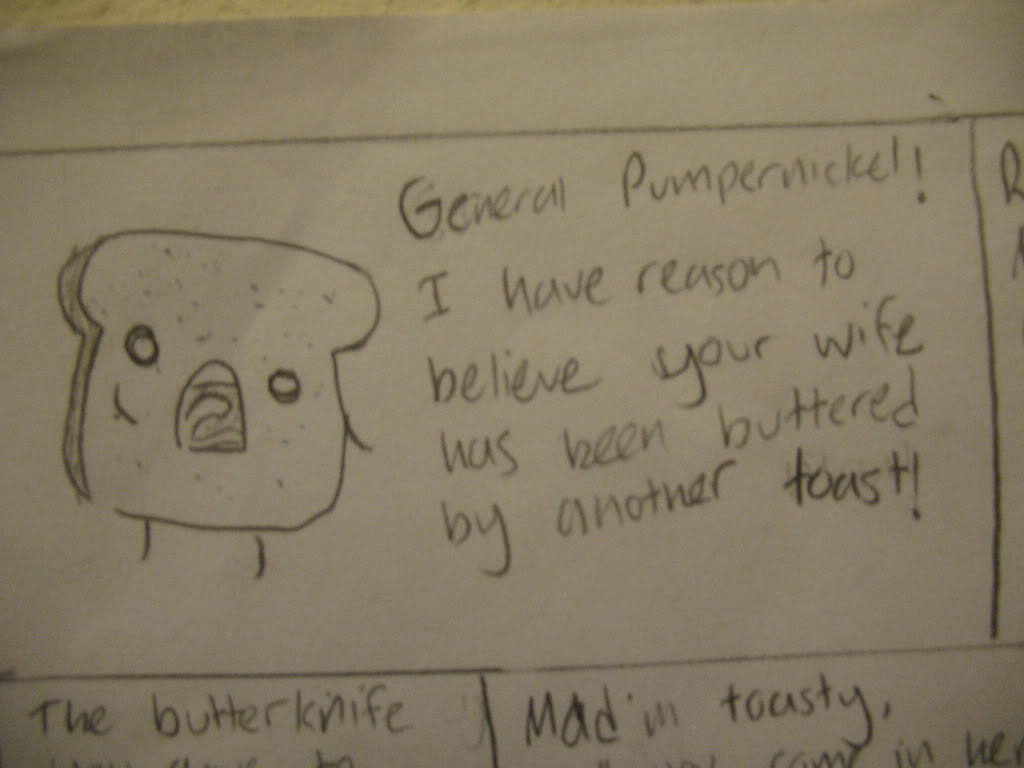 General Pumpernickel!
I have reason to
believe your wife
has been buttered
by another toast!
The butterknife
Mad'm toasty,
came in her